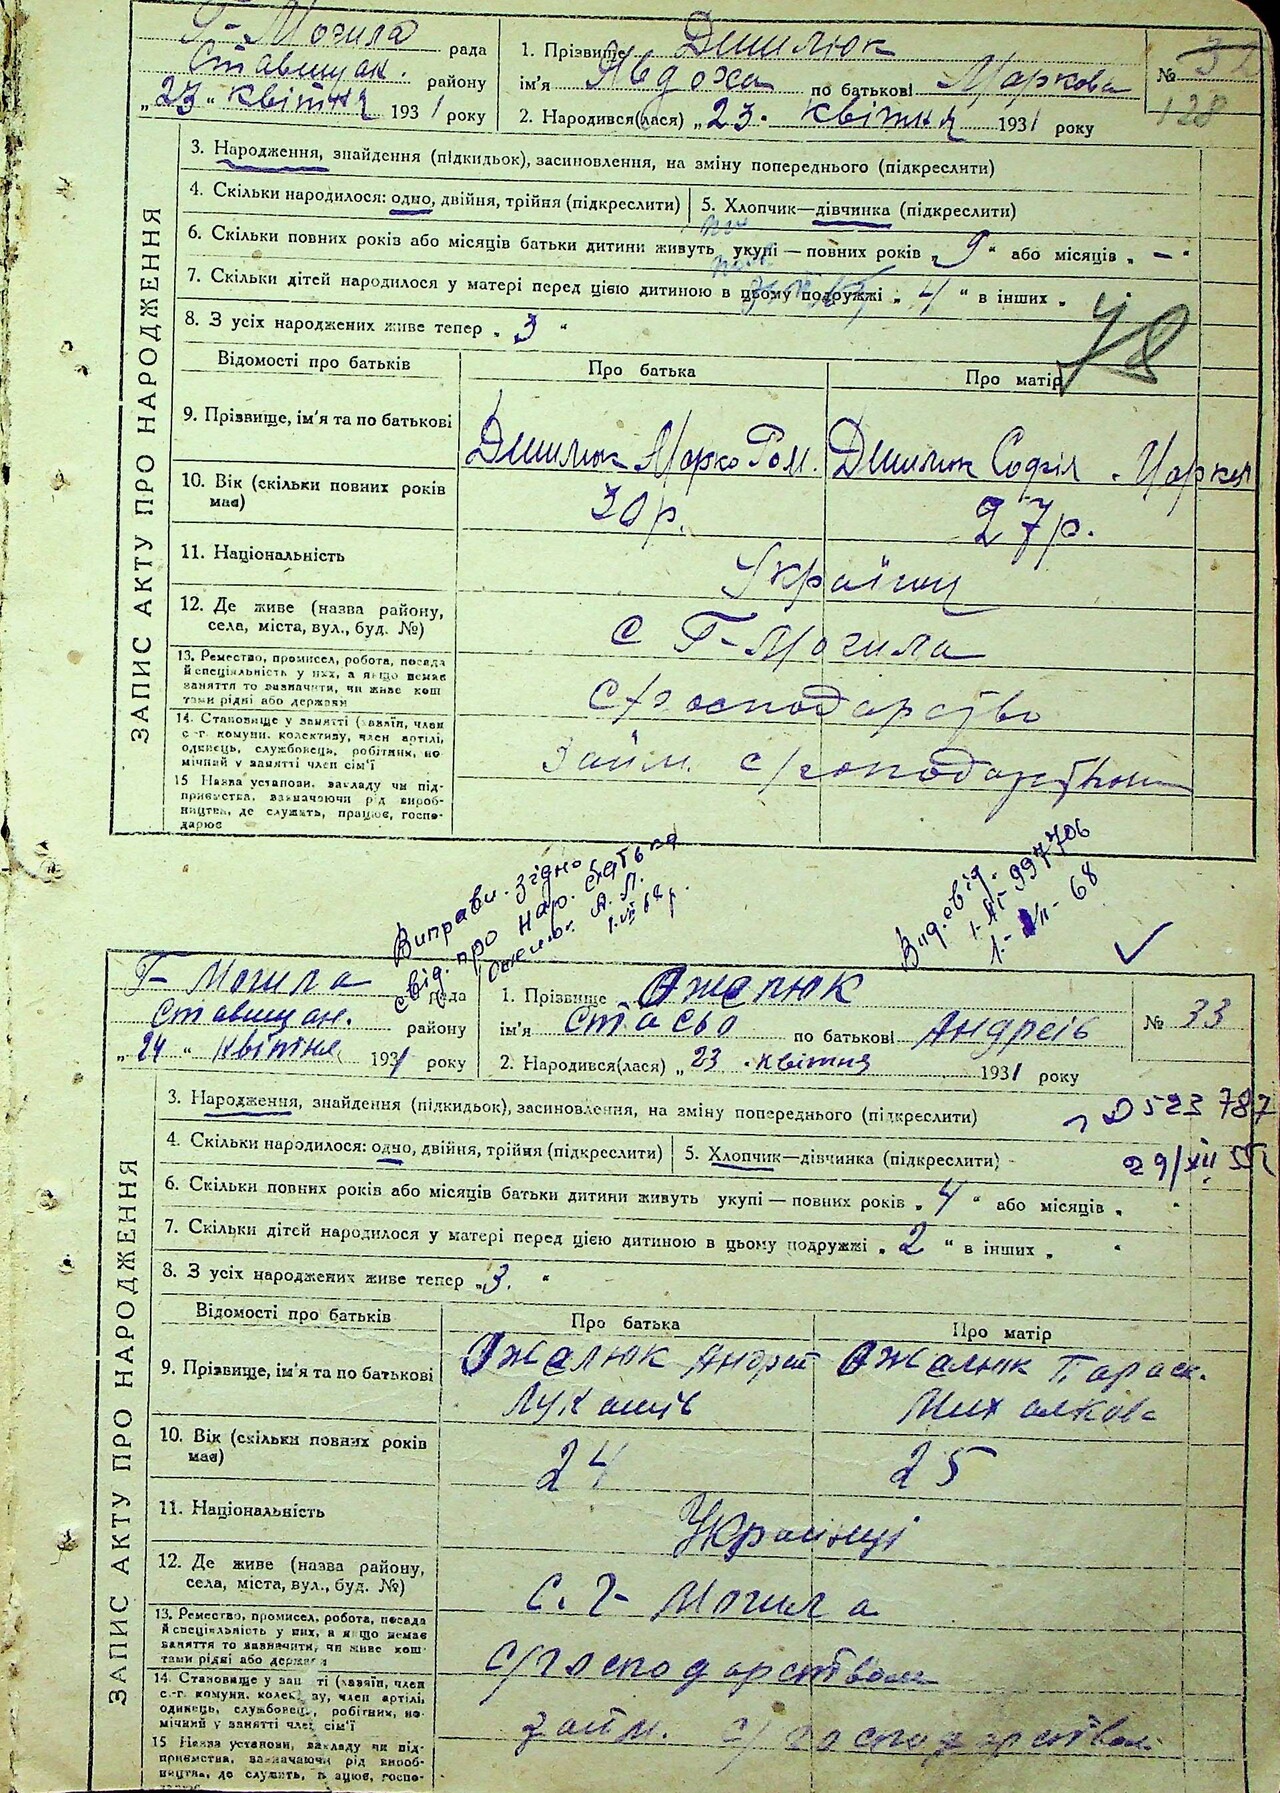 Г-Могила рада
Ставищан. району
„23“ квітня 1931 року
1. Прізвище
ім'я Явдоха по батькові Маркова
2. Народився(лася) „23. квітня 1931 року
№ 32
128
ЗАПИС АКТУ ПРО НАРОДЖЕННЯ
3. Народження, знайдення (підкидьок), засиновлення, на зміну попереднього (підкреслити)
4. Скільки народилося: одно, двійня, трійня (підкреслити)
5. Хлопчик—дівчинка (підкреслити)
6. Скільки повних років або місяців батьки дитини живуть укупі — повних років „9“ або місяців „—“
7. Скільки дітей народилося у матері перед цією дитиною в цьому подружжі „4“ в інших „
8. З усіх народжених живе тепер „3“
78
Відомості про батьків
Про батька
Про матір
9. Прізвище, ім'я та по батькові
Марко Ром.
Софія
10. Вік (скільки повних років має)
30 р.
27 р.
11. Національність
Українці
12. Де живе (назва району, села, міста, вул., буд. №)
с Г-Могила
13. Ремество, промисел, робота, посада й спеціяльність у них, а якщо немає заняття то вазначити, чи живе коштами рідні або держави
с/господарство
14. Становище у занятті (хазяїн, член с.-г. комуни, колективу, член артілі, одинець, службовець, робітник, помічний у занятті член сім'ї
займ. с/господарством
15 Назва установи, закладу чи підприємства, вазначаючи рід виробництва, де служить, працює, господарює
Виправл. згідно
свід. про нар. батька
Ожелюк А. Л.
1.VII 68 р.
Вид. свід.
I-АГ 997706
1.-VII- 68
Г- Могила рада
Ставищан. району
„24“ квітня 1931 року
1. Прізвище Ожелюк
ім'я Стасьо по батькові Андреів
2. Народився(лася) „23 . квітня 1931 року
№ 33
ЗАПИС АКТУ ПРО НАРОДЖЕННЯ
3. Народження, знайдення (підкидьок), засиновлення, на зміну попереднього (підкреслити)
523 787
29/XII 55
4. Скільки народилося: одно, двійня, трійня (підкреслити)
5. Хлопчик—дівчинка (підкреслити)
6. Скільки повних років або місяців батьки дитини живуть укупі — повних років „4“ або місяців „ “
7. Скільки дітей народилося у матері перед цією дитиною в цьому подружжі „2“ в інших „ “
8. З усіх народжених живе тепер „3.“
Відомості про батьків
Про батька
Про матір
9. Прізвище, ім'я та по батькові
Ожелюк Андрей
Лукашів
Ожелюк Параск.
Михалкова
10. Вік (скільки повних років має)
24
25
11. Національність
Українці
12. Де живе (назва району, села, міста, вул., буд. №)
с. Г- Могила
13. Ремество, промисел, робота, посада й спеціяльність у них, а якщо немає заняття то вазначити, чи живе коштами рідні або держави
с/господарством
14. Становище у занятті (хазяїн, член с.-г. комуни, колективу, член артілі, одинець, службовець, робітник, помічний у занятті член сім'ї
займ. с/господарством
15 Назва установи, закладу чи підприємства, вазначаючи рід виробництва, де служить, працює, госпо-